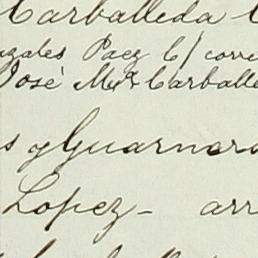 Carballeda
Paez C/ corre
José Mª Carballe
s y Guarnero
Lopez - arr